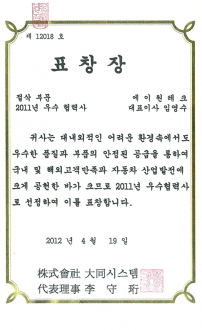 제 12018 호
표 창 장
절삭 부문 에 이 원 테 크
2011년 우수 협력사 대표이사 임영수
귀사는 대내외적인 어려운 환경속에서도
우수한 품질과 부품의 안정된 공급을 통하여
국내 및 해외고객만족과 자동차 산업발전에
크게 공헌한 바가 크므로 2011년 우수협력사
로 선정하여 이를 표창합니다.
2012 년 4 월 19 일
株式會社 大同시스템
代表理事 李 守 珩